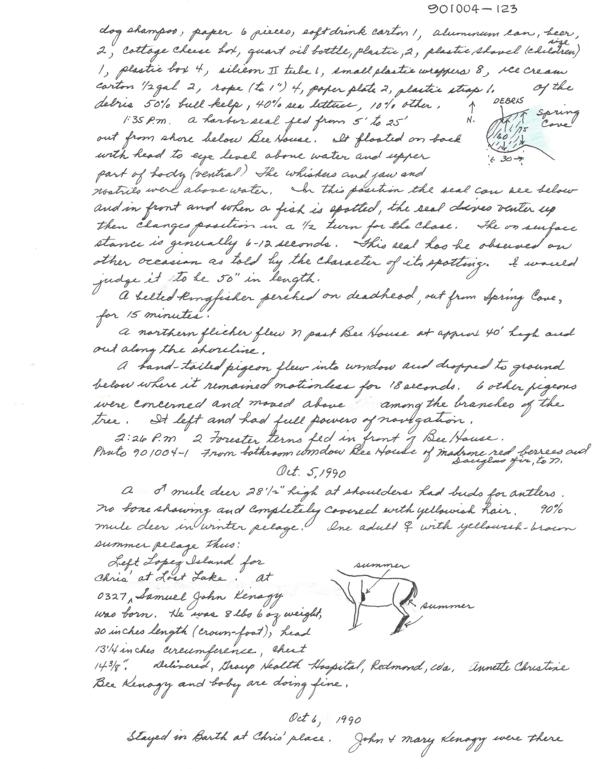 901004-123
dog shampoo, paper 6 pieces, soft drink carton 1, aluminum can, beer,
2, cottage cheese box, quart oil bottle, plastic, 2, plastic shovel (children size)
1, plastic box 4, silicon II tube 1, small plastic wrappers 8, ice cream
carton 1/2 gal 2, rope (to 1") 4, paper plate 2, plastic strap 1. Of the
debris 50% bull kelp, 40% sea lettuce, 10% other.
N.
DEBRIS
Spring Cove
60
75
30
1:35 P.m. A harbor seal fed from 5' to 25'
out from shore below Bee House. It floated on back
with head to eye level above water and upper
part of body (ventral) The whiskers and jaw and
nostrils were above water. In this position the seal can see below
and in front and when a fish is spotted, the seal dives venter up
then changes position in a 1/2 turn for the chase. The on surface
stance is generally 6-12 seconds. This seal has be observed on
other occasion as told by the character of its spotting. I would
judge it to be 50" in length.
A belted Kingfisher perched on deadhead, out from Spring Cove,
for 15 minutes.
A northern flicker flew N past Bee House at approx 40' high and
out along the shoreline.
A band-tailed pigeon flew into window and dropped to ground
below where it remained motionless for 18 seconds. 6 other pigeons
were concerned and moved above among the branches of the
tree. It left and had full powers of navigation.
2:26 P.m 2 Forester terns fed in front of Bee House.
Photo 901004-1 From bathroom window Bee House of madrone red berrees and
Douglas fir, to N.
Oct. 5, 1990
A ♂ mule deer 28 1/2" high at shoulders had buds for antlers.
No bone showing and completely covered with yellowish hair. 90%
mule deer in winter pelage. One adult ♀ with yellowish-brown
summer pelage thus:
summer
summer
Left Lopez Island for
Chris' at Lost Lake. At
0327, Samuel John Kenagy
was born. He was 8 lbs 6 oz weight,
20 inches length (crown-foot), head
13 1/4 inches circumference, chest
14 3/8". Delivered, Group Health Hospital, Redmond, Wa. Annette Christine
Bee Kenagy and baby are doing fine.
Oct 6, 1990
Stayed in Barth at Chris' place. John & Mary Kenagy were there